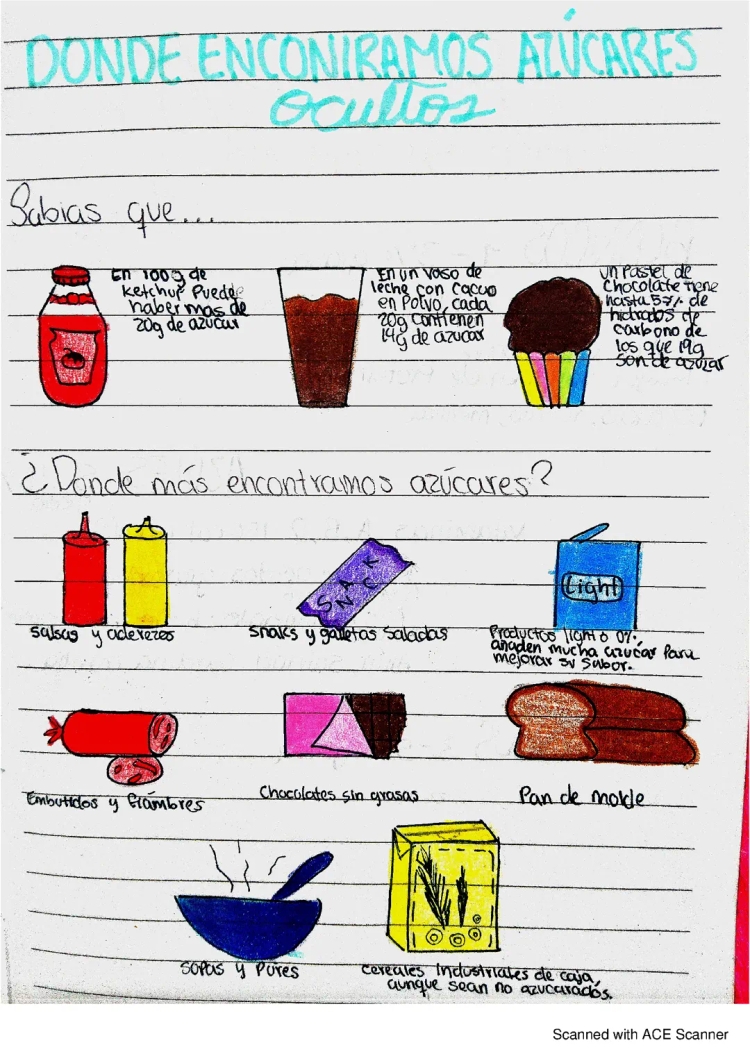 DONDE ENCONTRAMOS AZÚCARES
ocultos
Sabias que...
En 100g de
ketchup Puede
haber mas de
20g de azucar
En un vaso de
leche con cacao
en Polvo, cada
20g contienen
14g de azucar
un Pastel de
chocolate tiene
hasta 57% de
hidratos de
carbono de
los que 19g
son de azúzar
¿Donde más encontramos azúcares?
SNACK
Light
salsas y aderezos
snaks y galletas saladas
Productos light o 0%,
añaden mucha azucar Para
mejorar su sabor.
Embutidos y fiambres
Chocolates sin grasas
Pan de molde
Sopas y Pures
cereales industriales de caja,
aunque sean no azucarados.
Scanned with ACE Scanner